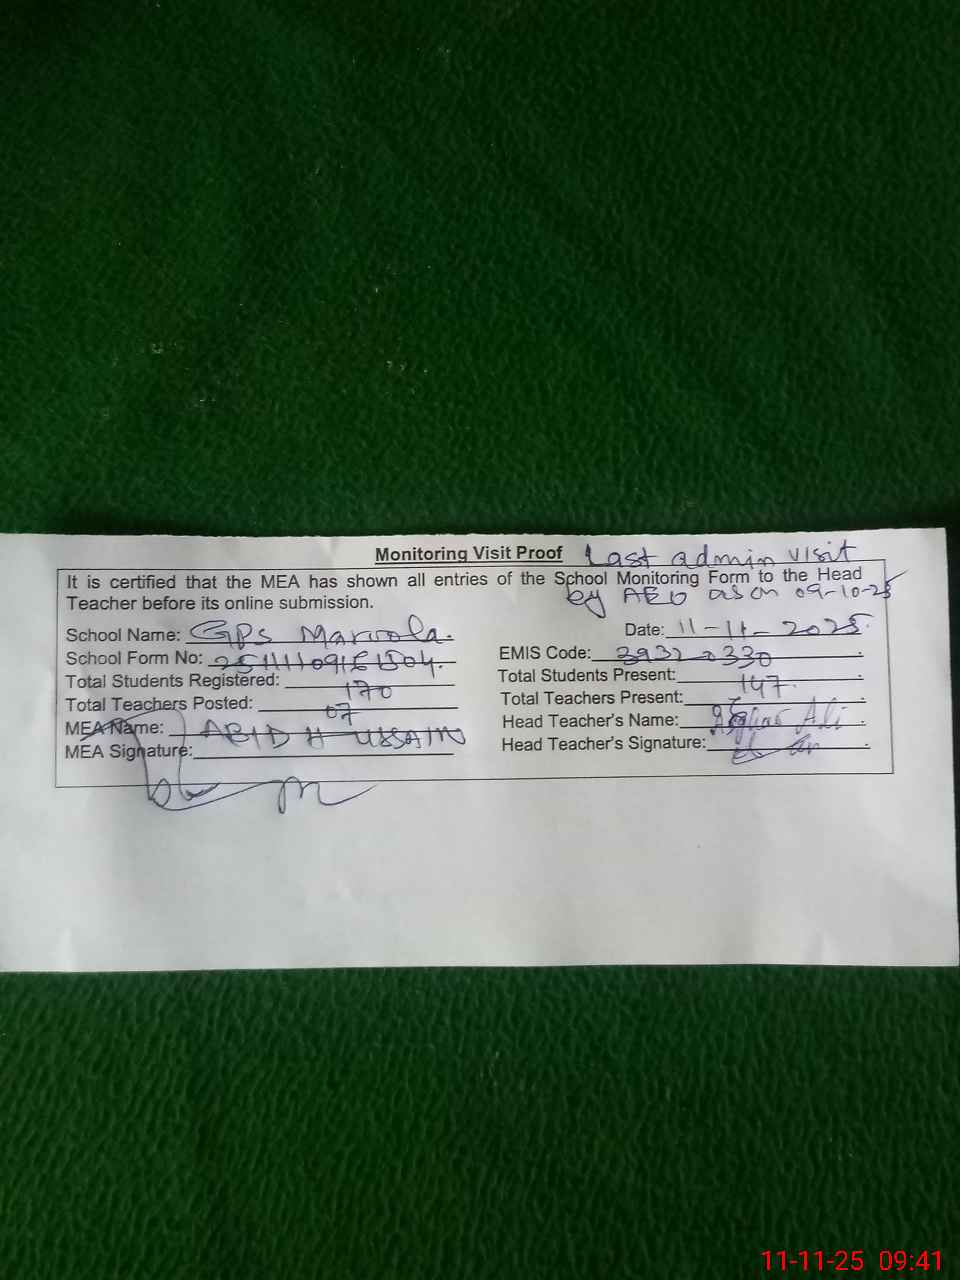 Monitoring Visit Proof Last admin visit
by AEO as on 09-10-25
It is certified that the MEA has shown all entries of the School Monitoring Form to the Head
Teacher before its online submission.
School Name: GPS Maroola. Date: 11-11-2025.
School Form No: EMIS Code: 39320330
Total Students Registered: 170 Total Students Present: 147
Total Teachers Posted: 07 Total Teachers Present:
MEA Name: ABID HUSSAIN Head Teacher's Name: Asghar Ali
MEA Signature: Head Teacher's Signature:
11-11-25 09:41